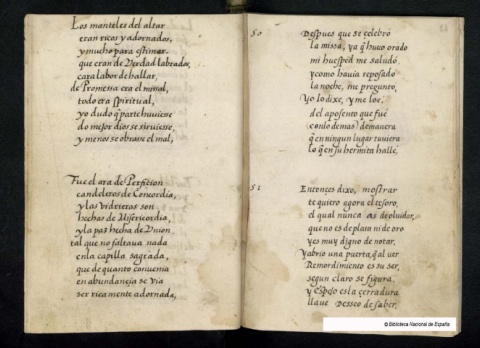 Los manteles del altar
eran ricos y adornados,
y mucho para estimar
que eran de Verdad labrados,
cara labor de hallar,
de Promessa era el misal,
todo era spiritual,
yo dudo q̃ parte huuiesse
do mejor dios se siruiesse,
y menos se obrasse el mal,
Fue el ara de Perfetion
candeleros de Concordia,
y las vidrieras son
hechas de Misericordia,
y la paz hecha de Vnion
tal que no faltaua nada
en la capilla sagrada,
que de quanto conuenia
en abundançia se via
ser ricamente adornada,
50
Despues que se celebró
la missa, ya q̃ huuo orado
mi huesped me saludó
y como hauia reposado
la noche, me pregunto,
Yo lo dixe, y me loe,
del aposento que fué
con lo demas de manera
q̃ en ningun lugar tuuiera
lo q̃ en su hermita hallé,
51
Entonces dixo, mostrar
te quiero agora el tesoro,
el qual nunca as de oluidar,
que no es de plata ni de oro
y es muy digno de notar,
Y abrio una puerta, q̃ al ver
Remordimiento es su ser,
segun claro se figura,
y Espejo es la cerradura
llaue Desseo de saber,
© Biblioteca Nacional de España